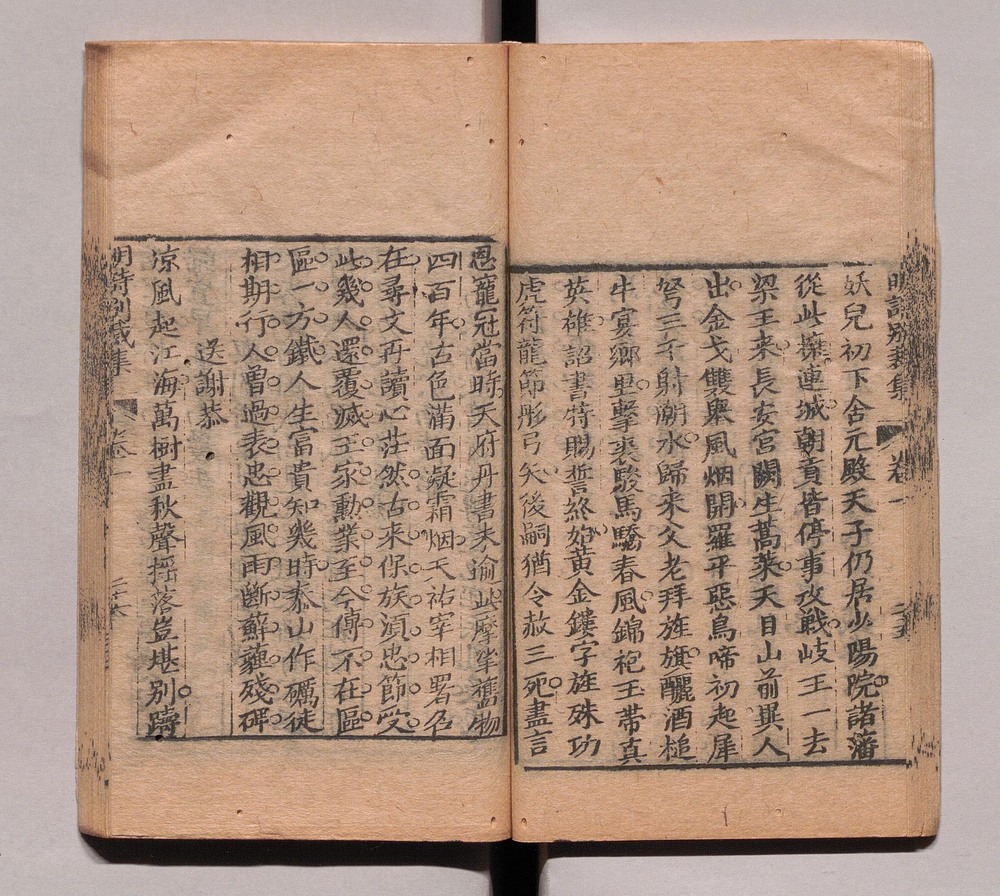 明詩別裁集 卷一 二十五
妖兒初下含元殿天子仍居少陽院諸藩
從此擁連城朝貢皆停事攻戰岐王一去
梁王來長安宮闕生蒿萊天目山前異人
出金戈雙舉風烟開羅平惡鳥啼初起犀
弩三千射潮水歸來父老拜旌旗釃酒槌
牛宴鄉里擊裘駿馬驕春風錦袍玉帶真
英雄詔書特賜誓終始黃金鏤字旌殊功
虎符龍節彤弓矢後嗣猶令赦三死盡言
恩寵冠當時天府丹書未逾此摩挲舊物
四百年古色滿面凝霜烟天祐宰相署名
在尋文再讀心茫然古來保族須忠節受
此幾人還覆滅王家勳業至今傳不在區
區一方鐵人生富貴知幾時泰山作礪徒
相期行人曾過表忠觀風雨斷蘚蘿殘碑
送謝恭
涼風起江海萬樹盡秋聲搖落豈堪別躊
明詩別裁集 卷一 二十六